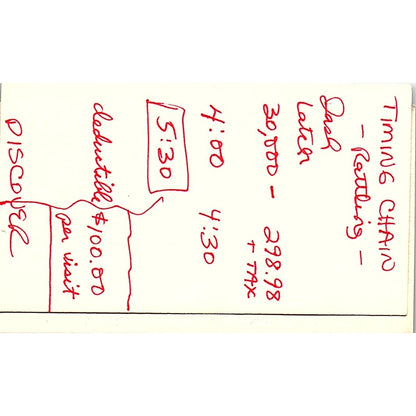 TIMING CHAIN
- Rattling -
Dash
Latch
30,000 - 298.98
+ TAX
4:00 4:30
5:30
deductible $100.00
per visit
DISCOVER